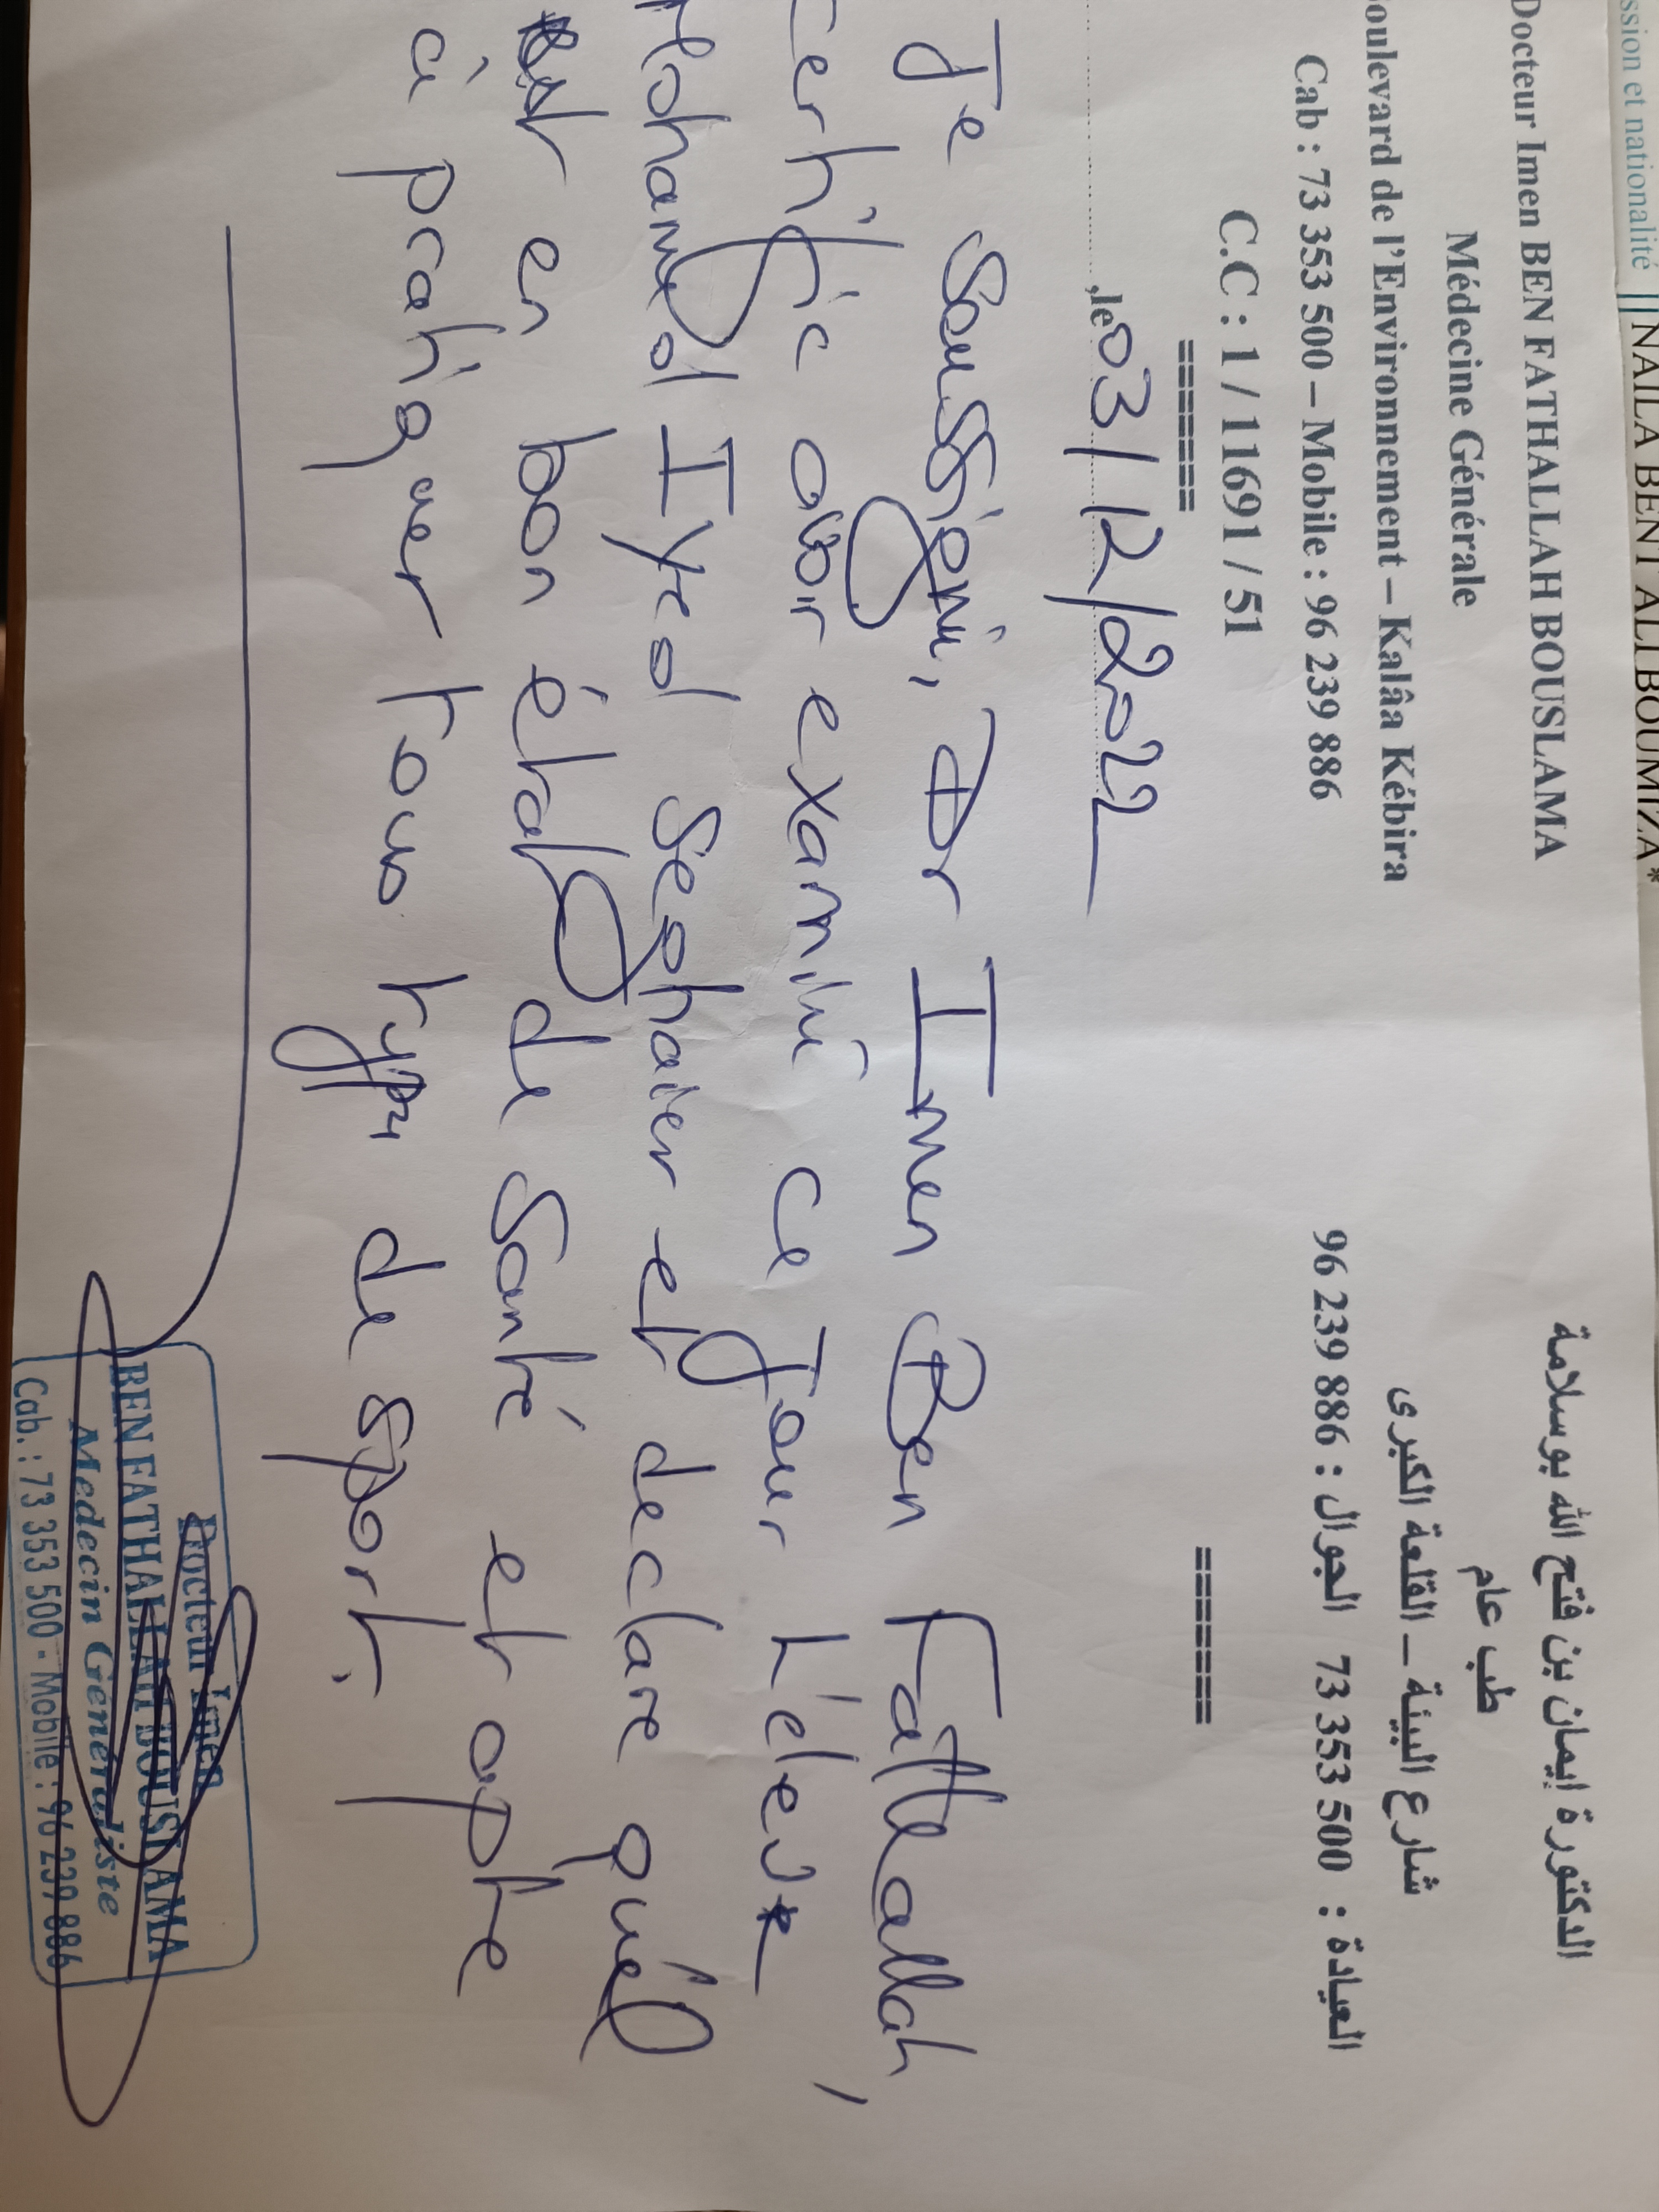 ssion et nationalité || NAILA BENT ALI BOUMIZA *
Docteur Imen BEN FATHALLAH BOUSLAMA
الدكتورة إيمان بن فتح الله بوسلامة
Médecine Générale
طب عام
oulevard de l'Environnement – Kalâa Kébira
شارع البيئة – القلعة الكبرى
Cab : 73 353 500 – Mobile : 96 239 886
العيادة : 73 353 500 الجوال : 96 239 886
C.C : 1 / 11691 / 51
======= =======
,le 03/12/2022
Je soussigné, Dr Imen Ben Fathallah,
certifie avoir examiné ce jour L'élève
Mohamed Iyed Seghaier et declare qu'el
est en bon état de santé et apte
à pratiquer tous types de sport.
Docteur Imen
BEN FATHALLAH BOUSLAMA
Medecin Généraliste
Cab. : 73 353 500 - Mobile : 96 239 886